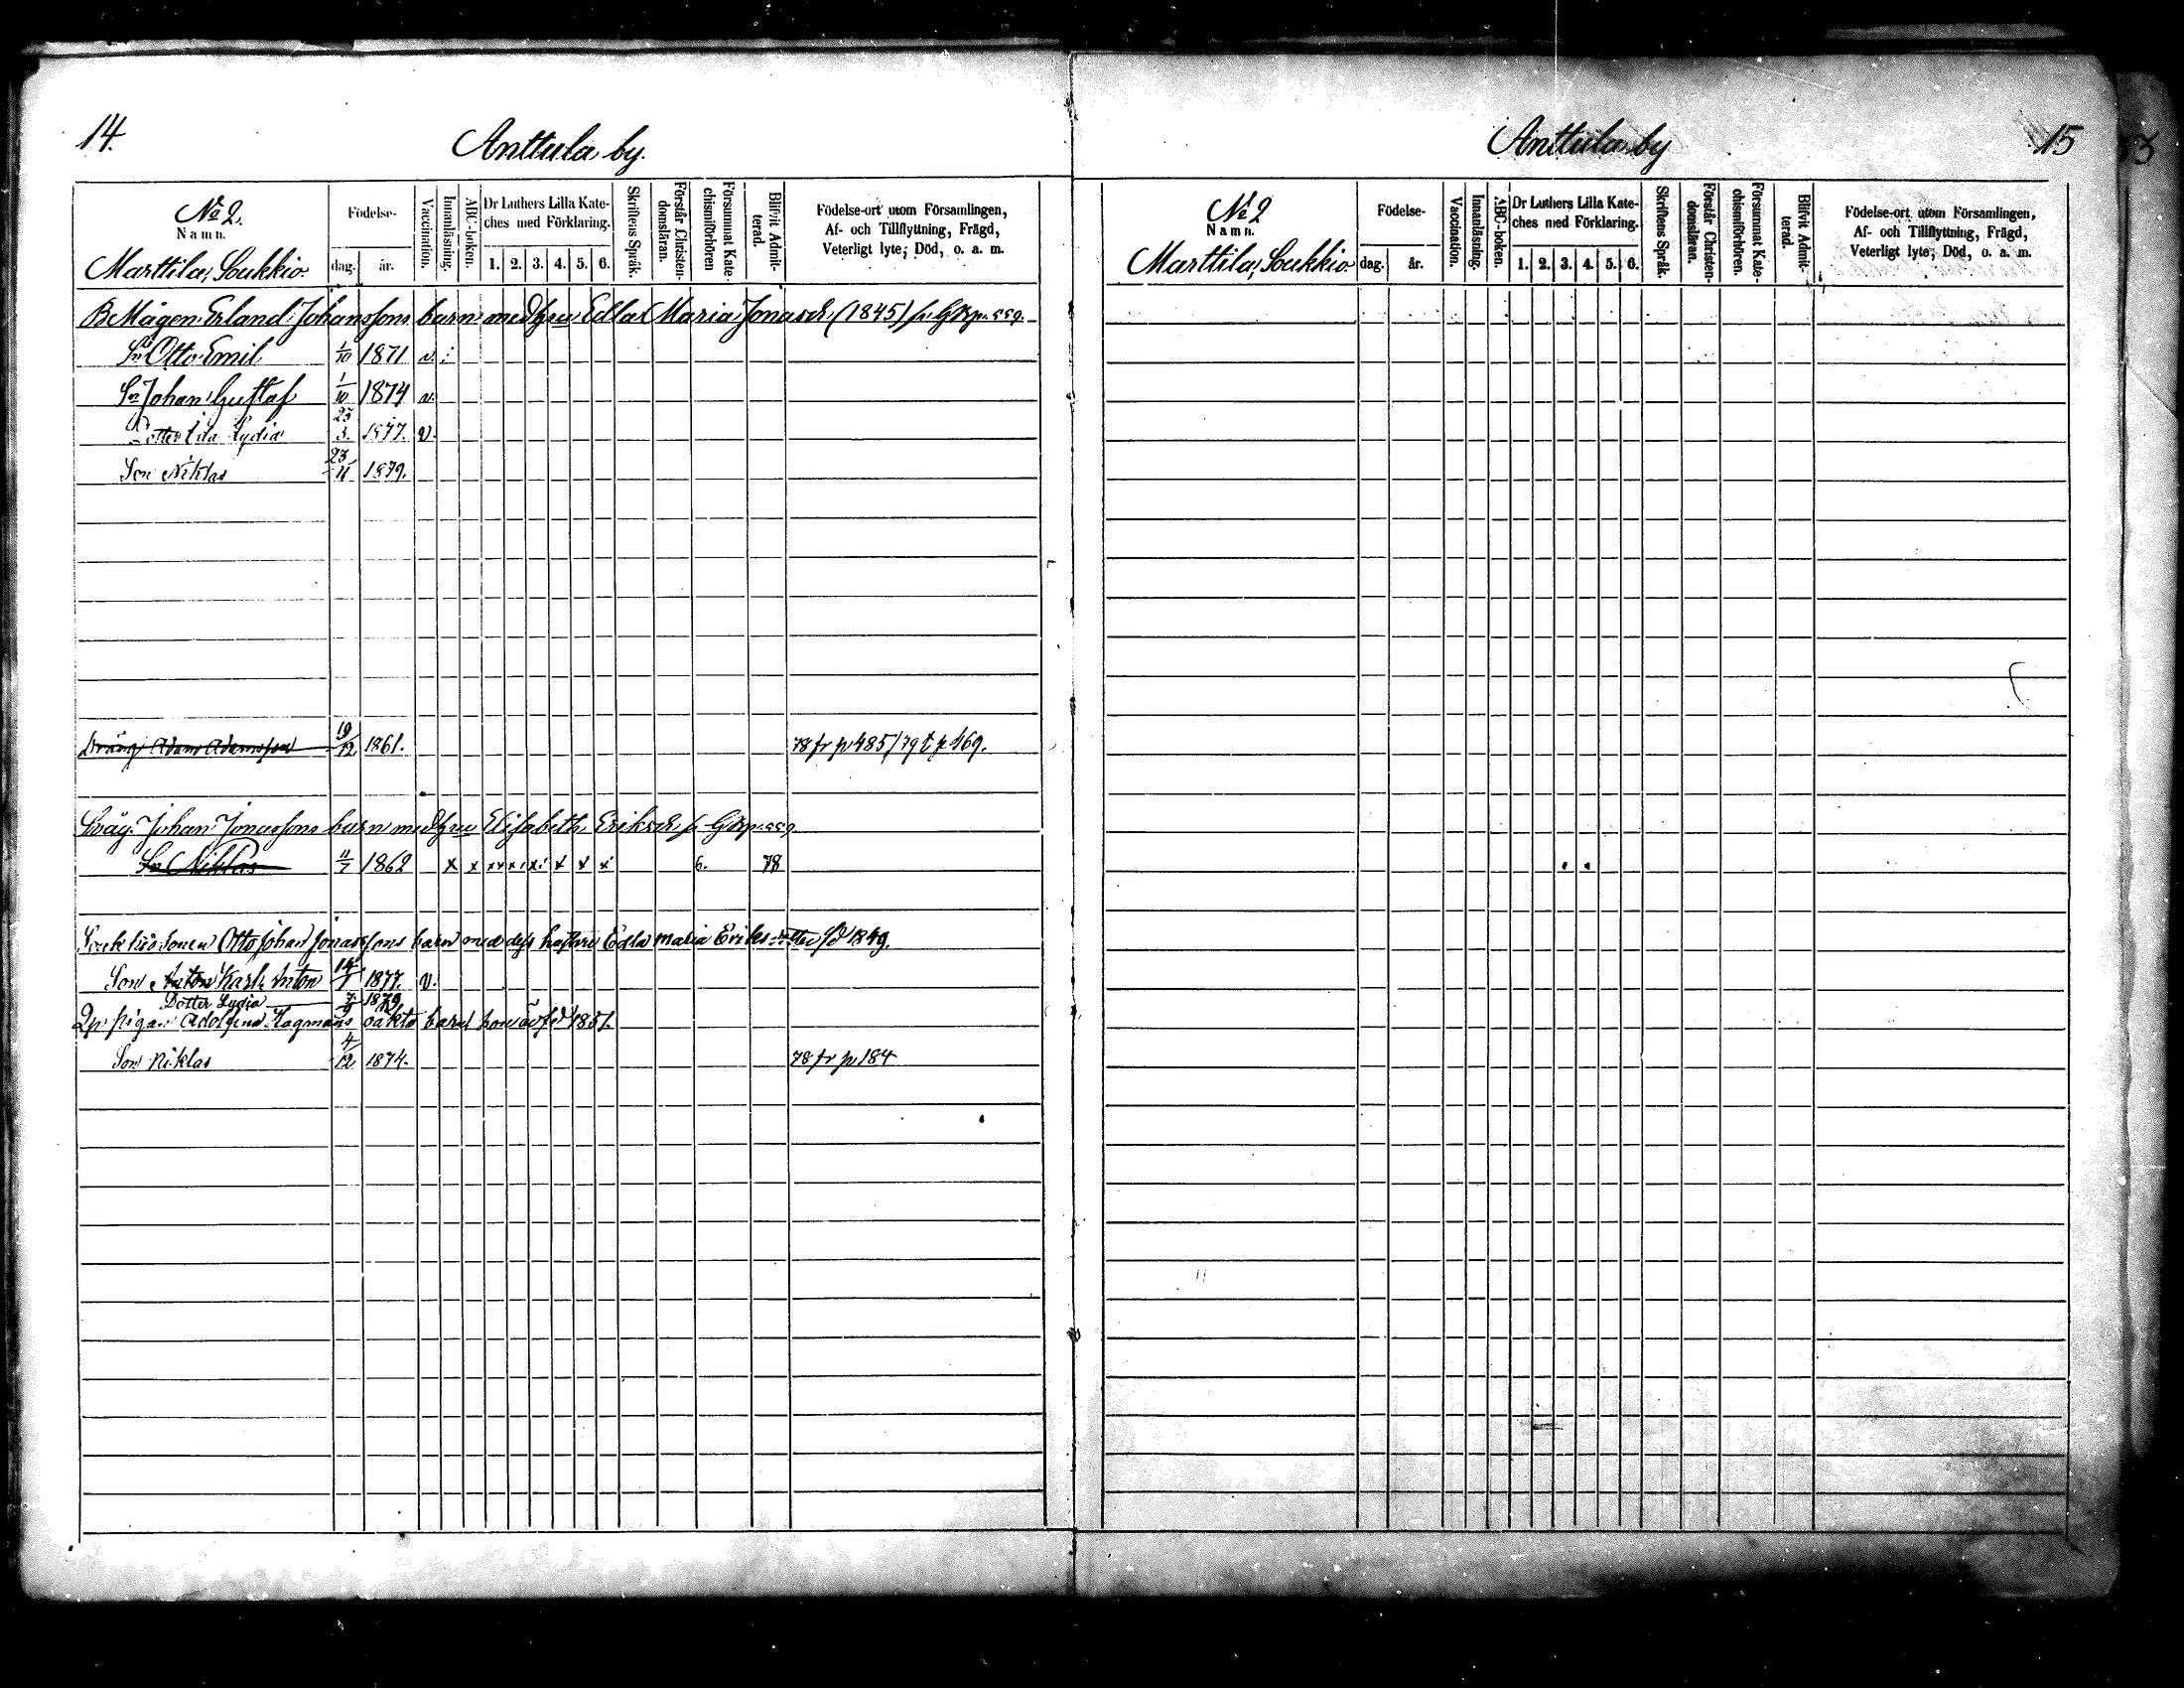 14.
Anttula by.
No 2.
Namn.
Marttila, Soukkio.
Födelse-
dag.
år.
Vaccination.
Innanläsning.
ABC-boken.
Dr Luthers Lilla Kate-
ches med Förklaring.
1. 2. 3. 4. 5. 6.
Skriftens Språk.
Förstår Christen-
domsläran.
Försummat Kate-
chismiförhören
Blifvit Admit-
terad.
Födelse-ort utom Församlingen,
Af- och Tillflyttning, Frägd,
Veterligt lyte, Död, o. a. m.
B. Mågen Erland Johanssons barn med hru Edla Maria Jonasdr (1845)
Sn Otto Emil 1/10 1871 v.
Sn Johan Gustaf 1/10 1874 v.
Dotter Lydia 23/3. 1877. v.
Son Niklas 23/11 1879.
Dräng Adam Adamsson 19/12 1861. 78 fr p. 485/79 t p 469.
Johan Jonassons barn med hru Elisabeth Eriksdr
Sn Niklas 11/7 1862 x x x x x x x x 6. 78
Soukkio Sonen Otto Johan Jonassons barn med dess hustru Edla Maria Eriksdotter fd 1849.
Son Anton Karl Anton 14/1 1877. v.
Dotter Lydia 7/9 1879
Qp pigan Adolfina Hagmans oäkta barn hon är fd 1851.
Son Niklas 4/12 1874. 78 fr p. 184
Anttula by
15
No 2
Namn.
Marttila, Soukkio
Födelse-
dag.
år.
Vaccination.
Innanläsning.
ABC-boken.
Dr Luthers Lilla Kate-
ches med Förklaring.
1. 2. 3. 4. 5. 6.
Skriftens Språk.
Förstår Christen-
domsläran.
Försummat Kate-
chismiförhören.
Blifvit Admit-
terad.
Födelse-ort utom Församlingen,
Af- och Tillflyttning, Frägd,
Veterligt lyte, Död, o. a. m.